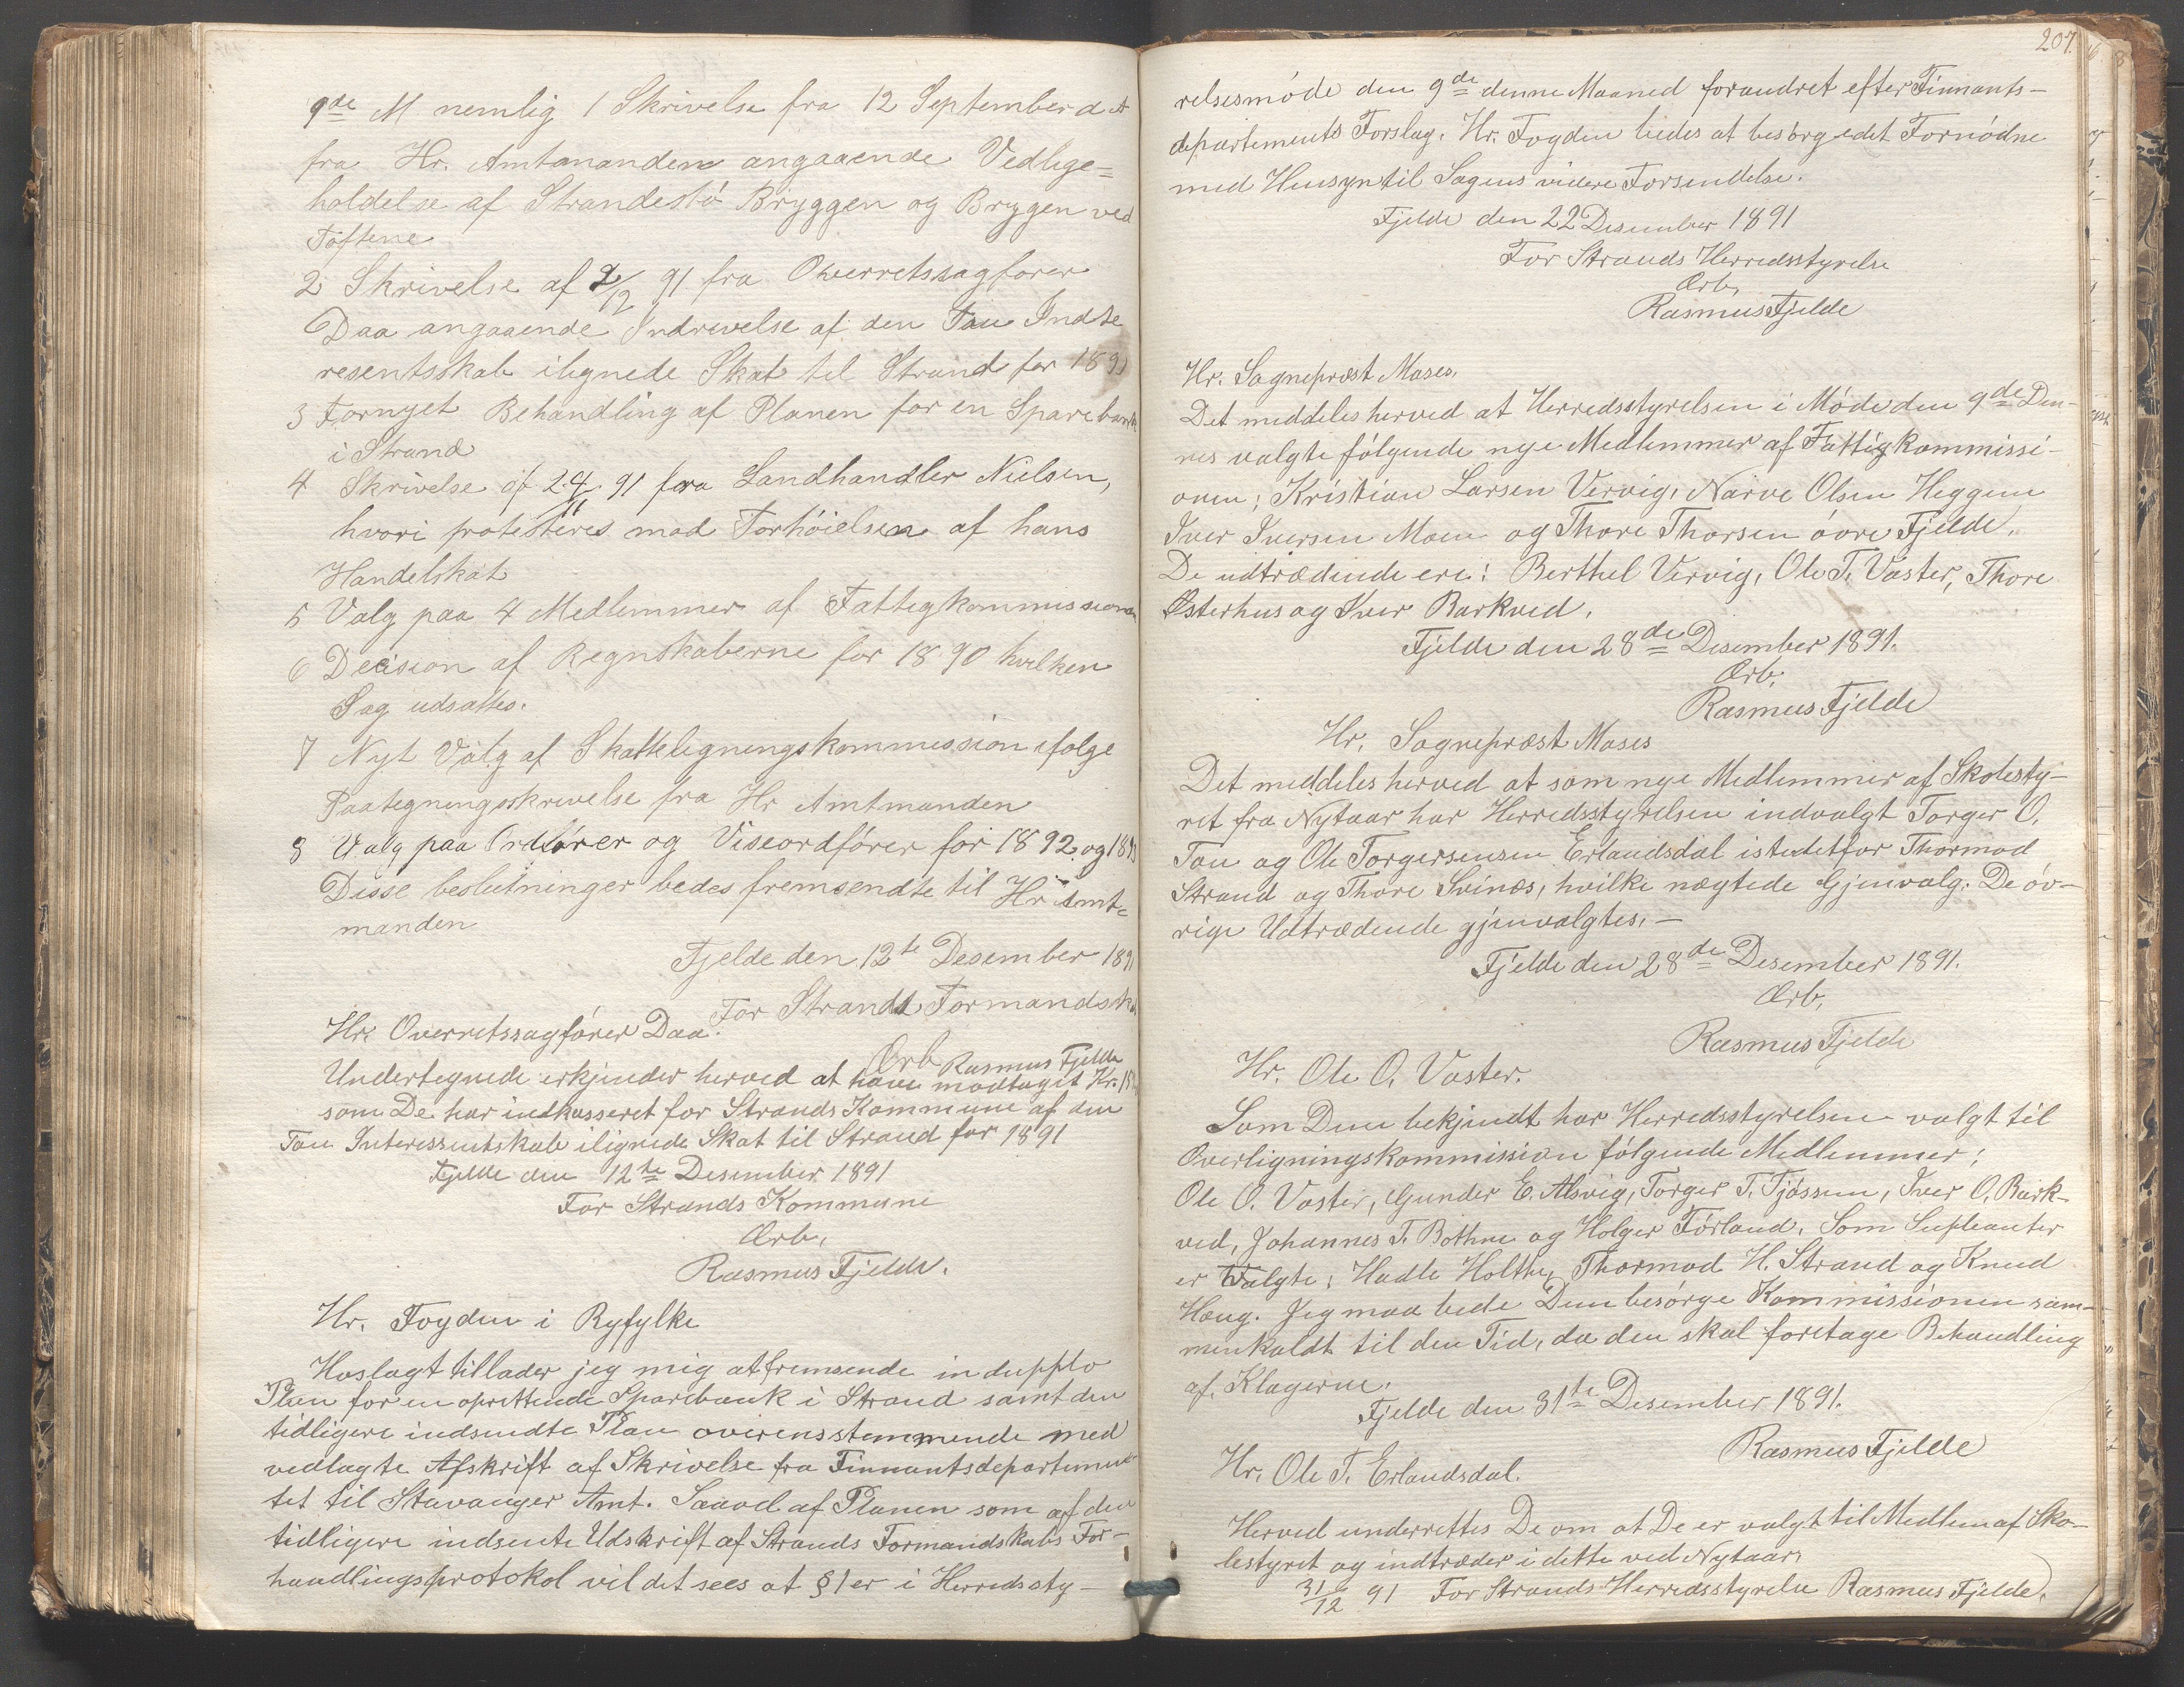 9de M nemlig 1 Skrivelse fra 12 September d A
fra Hr. Amtmanden angaaende Vedlige=
holdelse af Strandestö Bryggen og Brygen ved
Töftene
2 Skrivelse af 2/12 91 fra Overretssagförer
Daa angaaende Indrivelse af den Tau Indte
resentsskab ilignede Skat til Strand for 1891
3 Fornyet Behandling af Planen for en Sparebank
i Strand
4 Skrivelse af 24/11 91 fra Landhandler Nielsen,
hvori protesteres mod Forhöielsen af hans
Handelskat
5 Valg paa 4 Medlemmer af Fattigkommissionen
6 Decision af Regnskaberne for 1890 hvilken
Sag udsattes.
7 Nyt Valg af Skatteligningskommission ifölge
Paategningsskrivelse fra Hr Amtmanden
8 Valg paa Ordförer og Viseordförer for 1892 og 1893
Disse beslutninger bedes fremsendte til Hr Amt=
manden
Fjelde den 12te Desember 1891
For Strands Formandsk
Ærb Rasmus Fjelde
Hr. Overretssagförer Daa.
Undertegnede erkjender herved at have modtaget Kr. 15
som De har indkasseret for Strands Kommune af den
Tau Interessentskab ilignede Skat til Strand for 1891
Fjelde den 12te Desember 1891
For Strands Kommune
Ærb,
Rasmus Fjelde.
Hr. Fogden i Ryfylke
Hoslagt tillader jeg mig at fremsende in dupplo
Plan for en oprettende Sparebank i Strand samt den
tidligere indsendte Plan overensstemmende med
vedlagte Afskrift af Skrivelse fra Finnantsdepartemen-
tet til Stavanger Amt. Saavel af Planen som af den
tidligere indsente Udskrift af Strands Formandskabs For-
handlingsprotokol vil det sees at § 1 er i Herredssty-
207.
relsesmöde den 9de denne Maaned forandret efter Finnants-
departements Forslag. Hr. Fogden bedes at besörge det Fornödne
med Hensyn til Sagens videre Forsendelse.
Fjelde den 22 Desember 1891
For Strands Herredsstyrelse
Ærb,
Rasmus Fjelde
Hr. Sognepræst Moses.
Det meddeles herved at Herredsstyrelsen i Möde den 9de Den-
nes valgte fölgende nye Medlemmer af Fattigkommissi-
onen: Kristian Larsen Vervig, Narve Olsen Heggem
Iver Iversen Moen og Thore Thorsen övre Fjelde.
De udtrædende ere: Berthel Vervig, Ole T. Vaster, Thore
Østerhus og Iver Barkved.
Fjelde den 28de Desember 1891.
Ærb,
Rasmus Fjelde
Hr. Sognepræst Moses
Det meddeles herved at som nye Medlemmer af Skolesty-
ret fra Nytaar har Herredsstyrelsen indvalgt Torger O.
Tau og Ole Torgersensen Erlandsdal istedetfor Thormod
Strand og Thore Svines, hvilke nægtede Gjenvalg. De öv-
rige Udtrædende gjenvalgtes. —
Fjelde den 28de Desember 1891.
Ærb,
Rasmus Fjelde
Hr. Ole O. Vaster.
Som Dem bekjendt har Herredsstyrelsen valgt til
Overligningskommission fölgende Medlemmer:
Ole O. Vaster, Gunder E. Alsvig, Torger T. Tjössem, Iver O. Bark-
ved, Johannes T. Bothne og Holger Förland. Som Supleanter
er Valgte: Hadle Holthe, Thormod H. Strand og Knud
Haug. Jeg maa bede Dem besörge Kommissionen sam-
menkaldt til den Tid, da den skal foretage Behandling
af Klagerne.
Fjelde den 31te Desember 1891.
Rasmus Fjelde
Hr. Ole T. Erlandsdal.
Herved underrettes De om at De er valgt til Medlem af Sko-
lestyret og indtræder i dette ved Nytaar.
31/12 91 For Strands Herredsstyrelse Rasmus Fjelde.